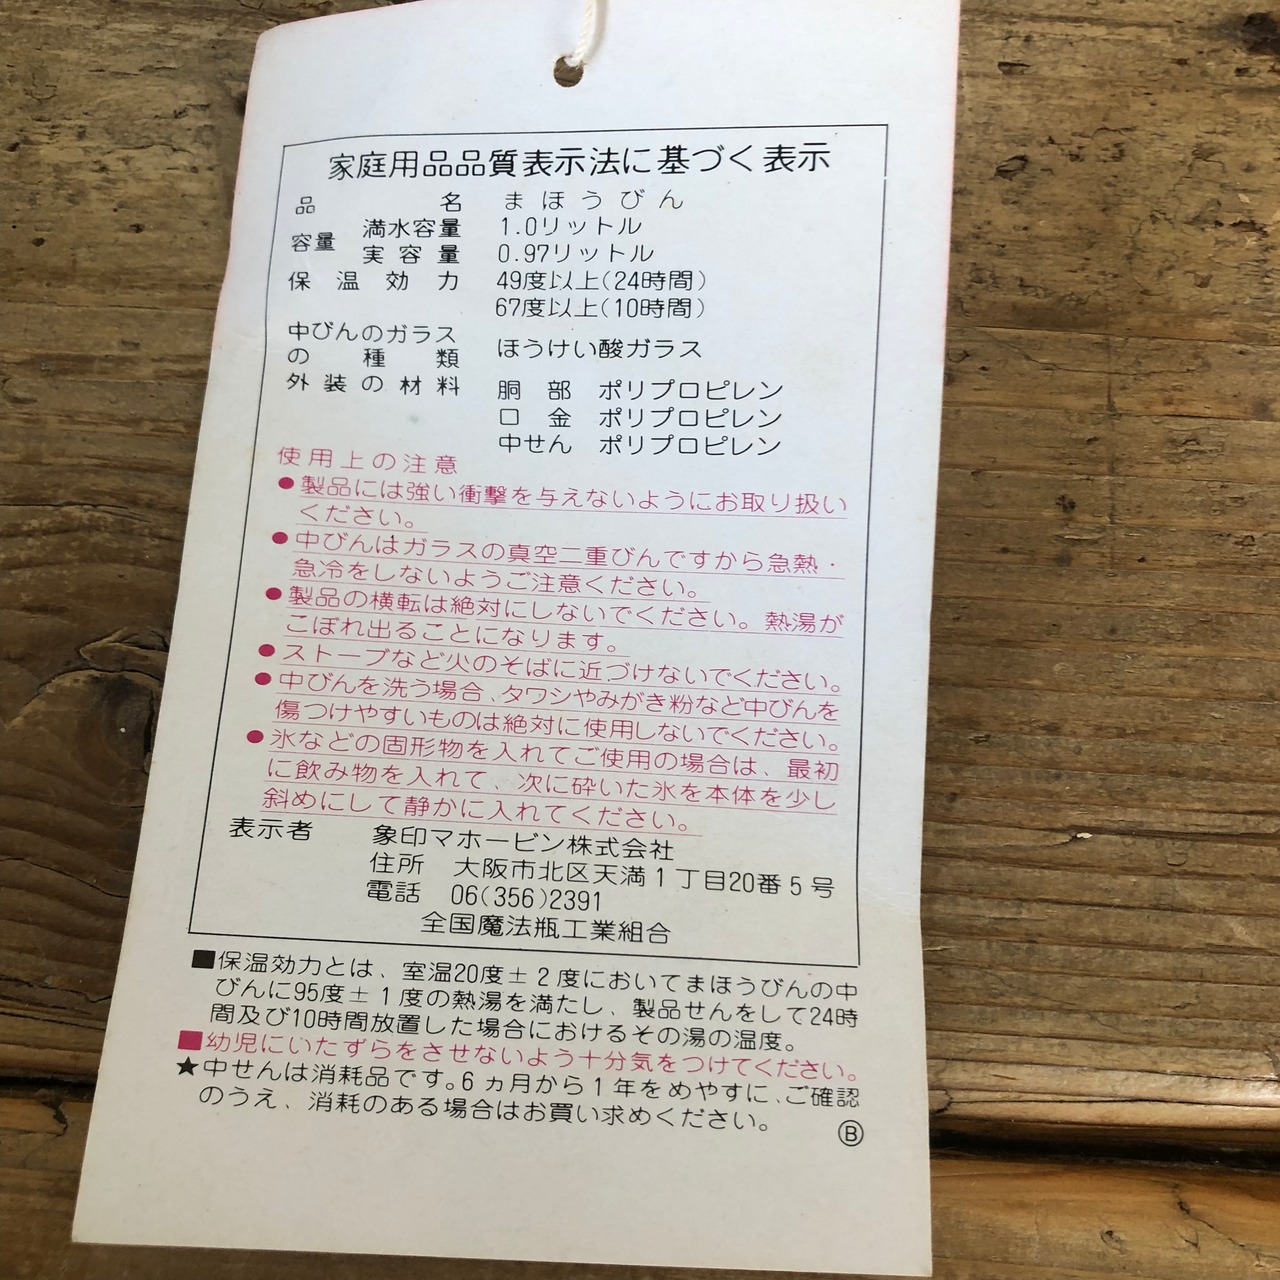 家庭用品品質表示法に基づく表示
品名 まほうびん
容量 満水容量 1.0リットル
実容量 0.97リットル
保温効力 49度以上(24時間)
67度以上(10時間)
中びんのガラス
の種類 ほうけい酸ガラス
外装の材料 胴部 ポリプロピレン
口金 ポリプロピレン
中せん ポリプロピレン
使用上の注意
●製品には強い衝撃を与えないようにお取り扱い
ください。
●中びんはガラスの真空二重びんですから急熱・
急冷をしないようご注意ください。
●製品の横転は絶対にしないでください。熱湯が
こぼれ出ることになります。
●ストーブなど火のそばに近づけないでください。
●中びんを洗う場合、タワシやみがき粉など中びんを
傷つけやすいものは絶対に使用しないでください。
●氷などの固形物を入れてご使用の場合は、最初
に飲み物を入れて、次に砕いた氷を本体を少し
斜めにして静かに入れてください。
表示者 象印マホービン株式会社
住所 大阪市北区天満1丁目20番5号
電話 06(356)2391
全国魔法瓶工業組合
■保温効力とは、室温20度±2度においてまほうびんの中
びんに95度±1度の熱湯を満たし、製品せんをして24時
間及び10時間放置した場合におけるその湯の温度。
■幼児にいたずらをさせないよう十分気をつけてください。
★中せんは消耗品です。6ヵ月から1年をめやすに、ご確認
のうえ、消耗のある場合はお買い求めください。
Ⓑ